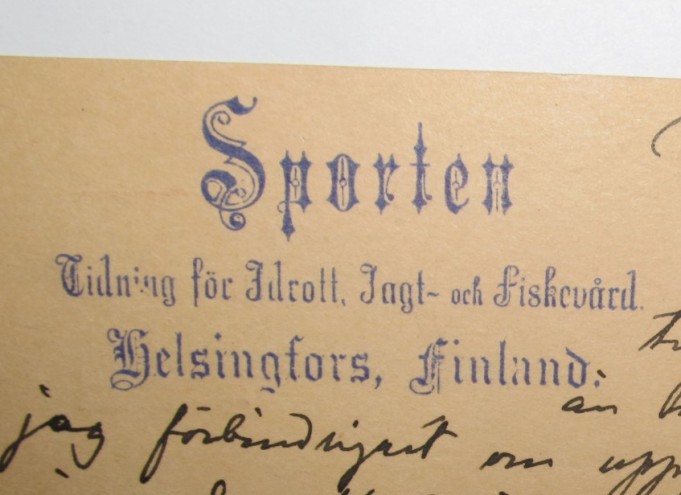 Sporten
Tidning för Idrott, Jagt- och Fiskevård.
Helsingfors, Finland.
än
jag förbindligast om